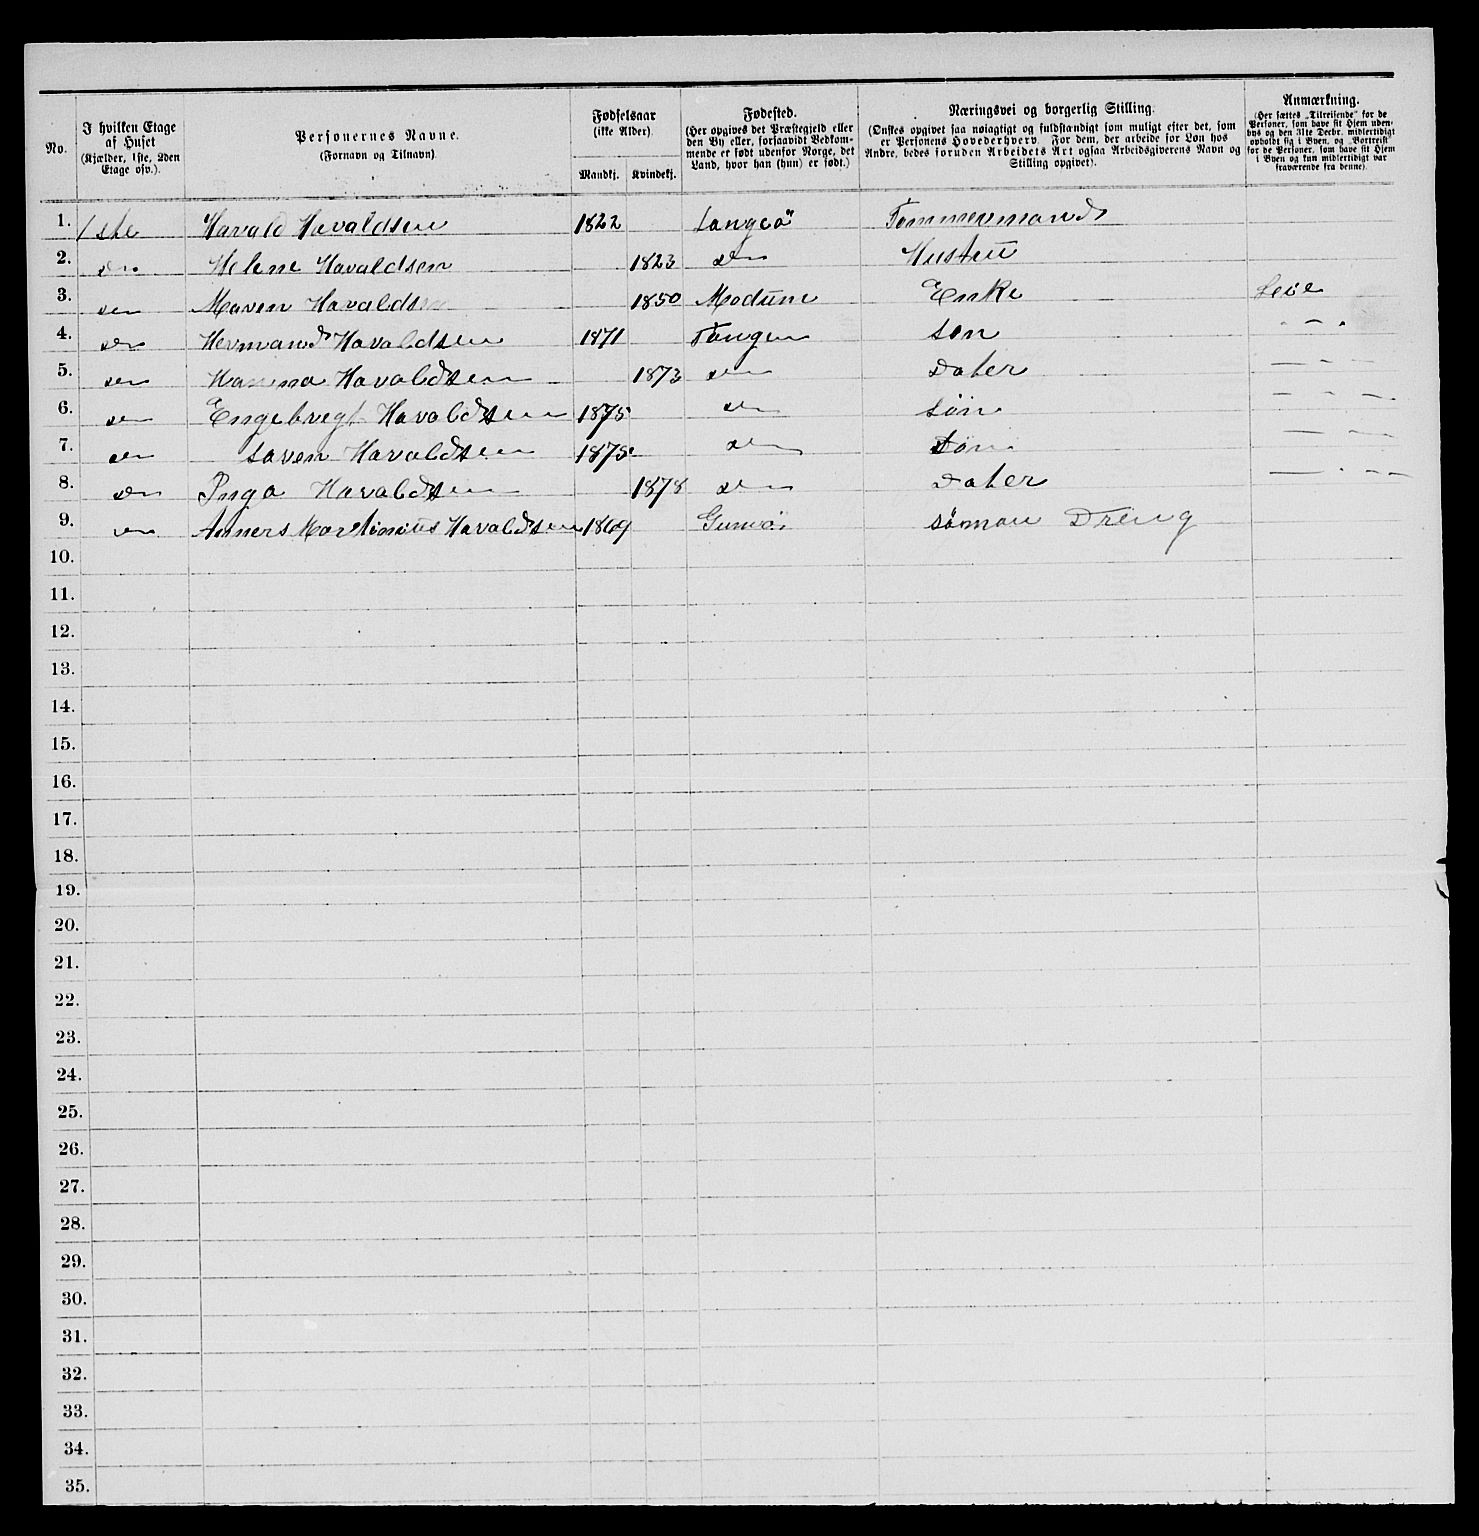 No.
I hvilken Etage af Huset (Kjælder, 1ste, 2den Etage osv.).
Personernes Navne. (Fornavn og Tilnavn)
Fødselsaar (ikke Alder). Mandkj. Kvindekj.
Fødested. (Her opgives det Præstegjeld eller den By eller, forsaavidt Bedkommende er født udenfor Norge, det Land, hvor han (hun) er født.)
Næringsvei og borgerlig Stilling. (Ønskes opgivet saa nøiagtigt og fuldstændigt som muligt efter det, som er Personens Hovederhverv. For dem, der arbeide for Løn hos Andre, bedes foruden Arbeidets Art ogsaa Arbeidsgiverens Navn og Stilling opgivet).
Anmærkning. (Her sættes „Tilreisende“ for de Personer, som have sit Hjem udenbys og den 31te Decbr. midlertidigt opholdt sig i Byen, og „Bortreist“ for de Personer, som have sit Hjem i Byen og kun midlertidigt var fraværende fra denne).
1. 1ste Harald Havaldsen 1822 Langeö Tømmermand
2. Helene Havaldsen 1823 Hustru
3. Maren Havaldsen 1850 Modum Enke
4. Hermand Havaldsen 1871 Tangen sön
5. Hanna Havaldsen 1873 Dater
6. Engebregt Havaldsen 1875 sön
7. Saren Havaldsen 1875 Sön
8. Inga Havaldsen 1878 Dater
9. Anners Martinius Havaldsen 1869 söman Dreng
10.
11.
12.
13.
14.
15.
16.
17.
18.
19.
20.
21.
22.
23.
24.
25.
26.
27.
28.
29.
30.
31.
32.
33.
34.
35.